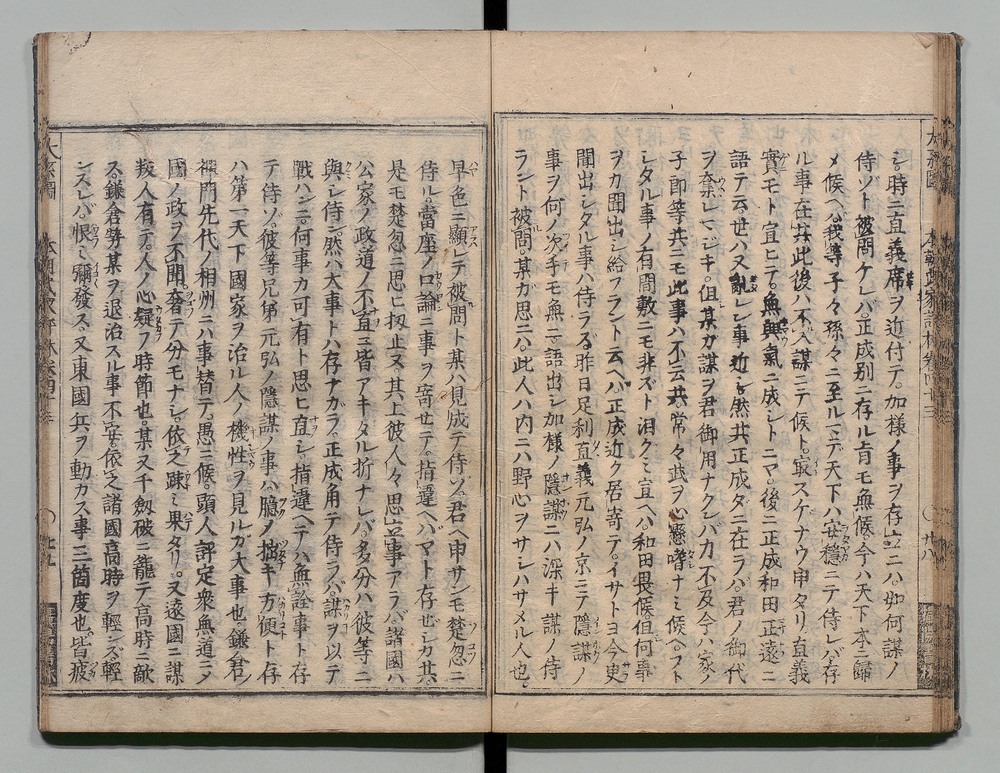 シ時ニ直義席ヲ近付テ。加様ノ事ヲ存立ニハ如何謀ノ
侍ゾト被問ケレバ。正成別ニ存ル旨モ無候。今ハ天下本ニ歸
メ候ヘバ。我等子々孫々ニ至ルマデ天下ハ安穩ニテ侍レバ存
ル事在。其此後ハ不入謀ニテ候ト。寂スゲナウ申タリ。直義
實モト宜ヒテ。無與氣ニ成シトニマ。後ニ正成和田正遠ニ
語テ云。世ハ又亂レン事近シ。然共正成ダニ在ラバ。君ノ御代
ヲ奪レマジキ。但某カ謀ヲ君御用ナクレバ力不及。今ハ家ノ
子郎等共ニモ此事ハ不云共。常々武ヲ心懸嗜ナミ候ヘ。フト
シタル事ノ有間敷ニモ非ズト泪クミ宜ヘバ。和田畏候。但何事
ヲカ聞出シ給フラント云ヘバ。正成近ク居寄テ。イサトヨ今更
聞出シタル事ハ侍ラ子。昨日足利直義元弘ノ京ニテ隱謀ノ
事ヲ何ノ次手モ無ニ語出シ。加樣ノ隱謀ニハ深キ謀ノ侍
ラント被問。某ガ思ニハ。此人ハ内ニハ野心ヲサシハサメル人也。
早色ニ顯レテ被問ト某ハ見成テ侍ゾ。君ヘ申サンモ楚忽ニ
侍ル。當座ノ口論ニ事ヲ寄セテ。指違ヘバマト存ゼシカ共。
是モ楚忽ニ思ヒ扨止ヌ。其上彼人々思立事アラバ。諸國ハ
公家ノ政道ノ不直ニ皆アキタル折ナレバ。多分ハ彼等ニ
與シ侍ン。然バ大事トハ存ナガラ。正成角テ侍ラバ。謀ヲ以テ
戰ハンニ。何事カ可有ト思ヒ直シ。指違ヘテハ無詮事ト存
テ侍ゾ。彼等兄弟元弘ノ隱謀ノ事ハ。臆ノ拙キ方便ト存
ハ第一天下國家ヲ治ル人ノ機性ヲ見ルガ大事也。鎌倉
禪門先代ノ相州ニハ事替テ。愚ニ候。頭人評定衆無道ニメ
國ノ政ヲ不聞。奢テ分モナシ。依之疎ミ果タリ。又遠國ニ謀
叛人有テ。人ノ心疑フ時節也。某又千劔破ニ籠テ高時ニ敵
ス。鎌倉勢某ヲ退治スル事不安。依之諸國高時ヲ輕ンズ。輕
ンスレバ恨ミ彌發ス。又東國兵ヲ動カス事三箇度也。皆疲